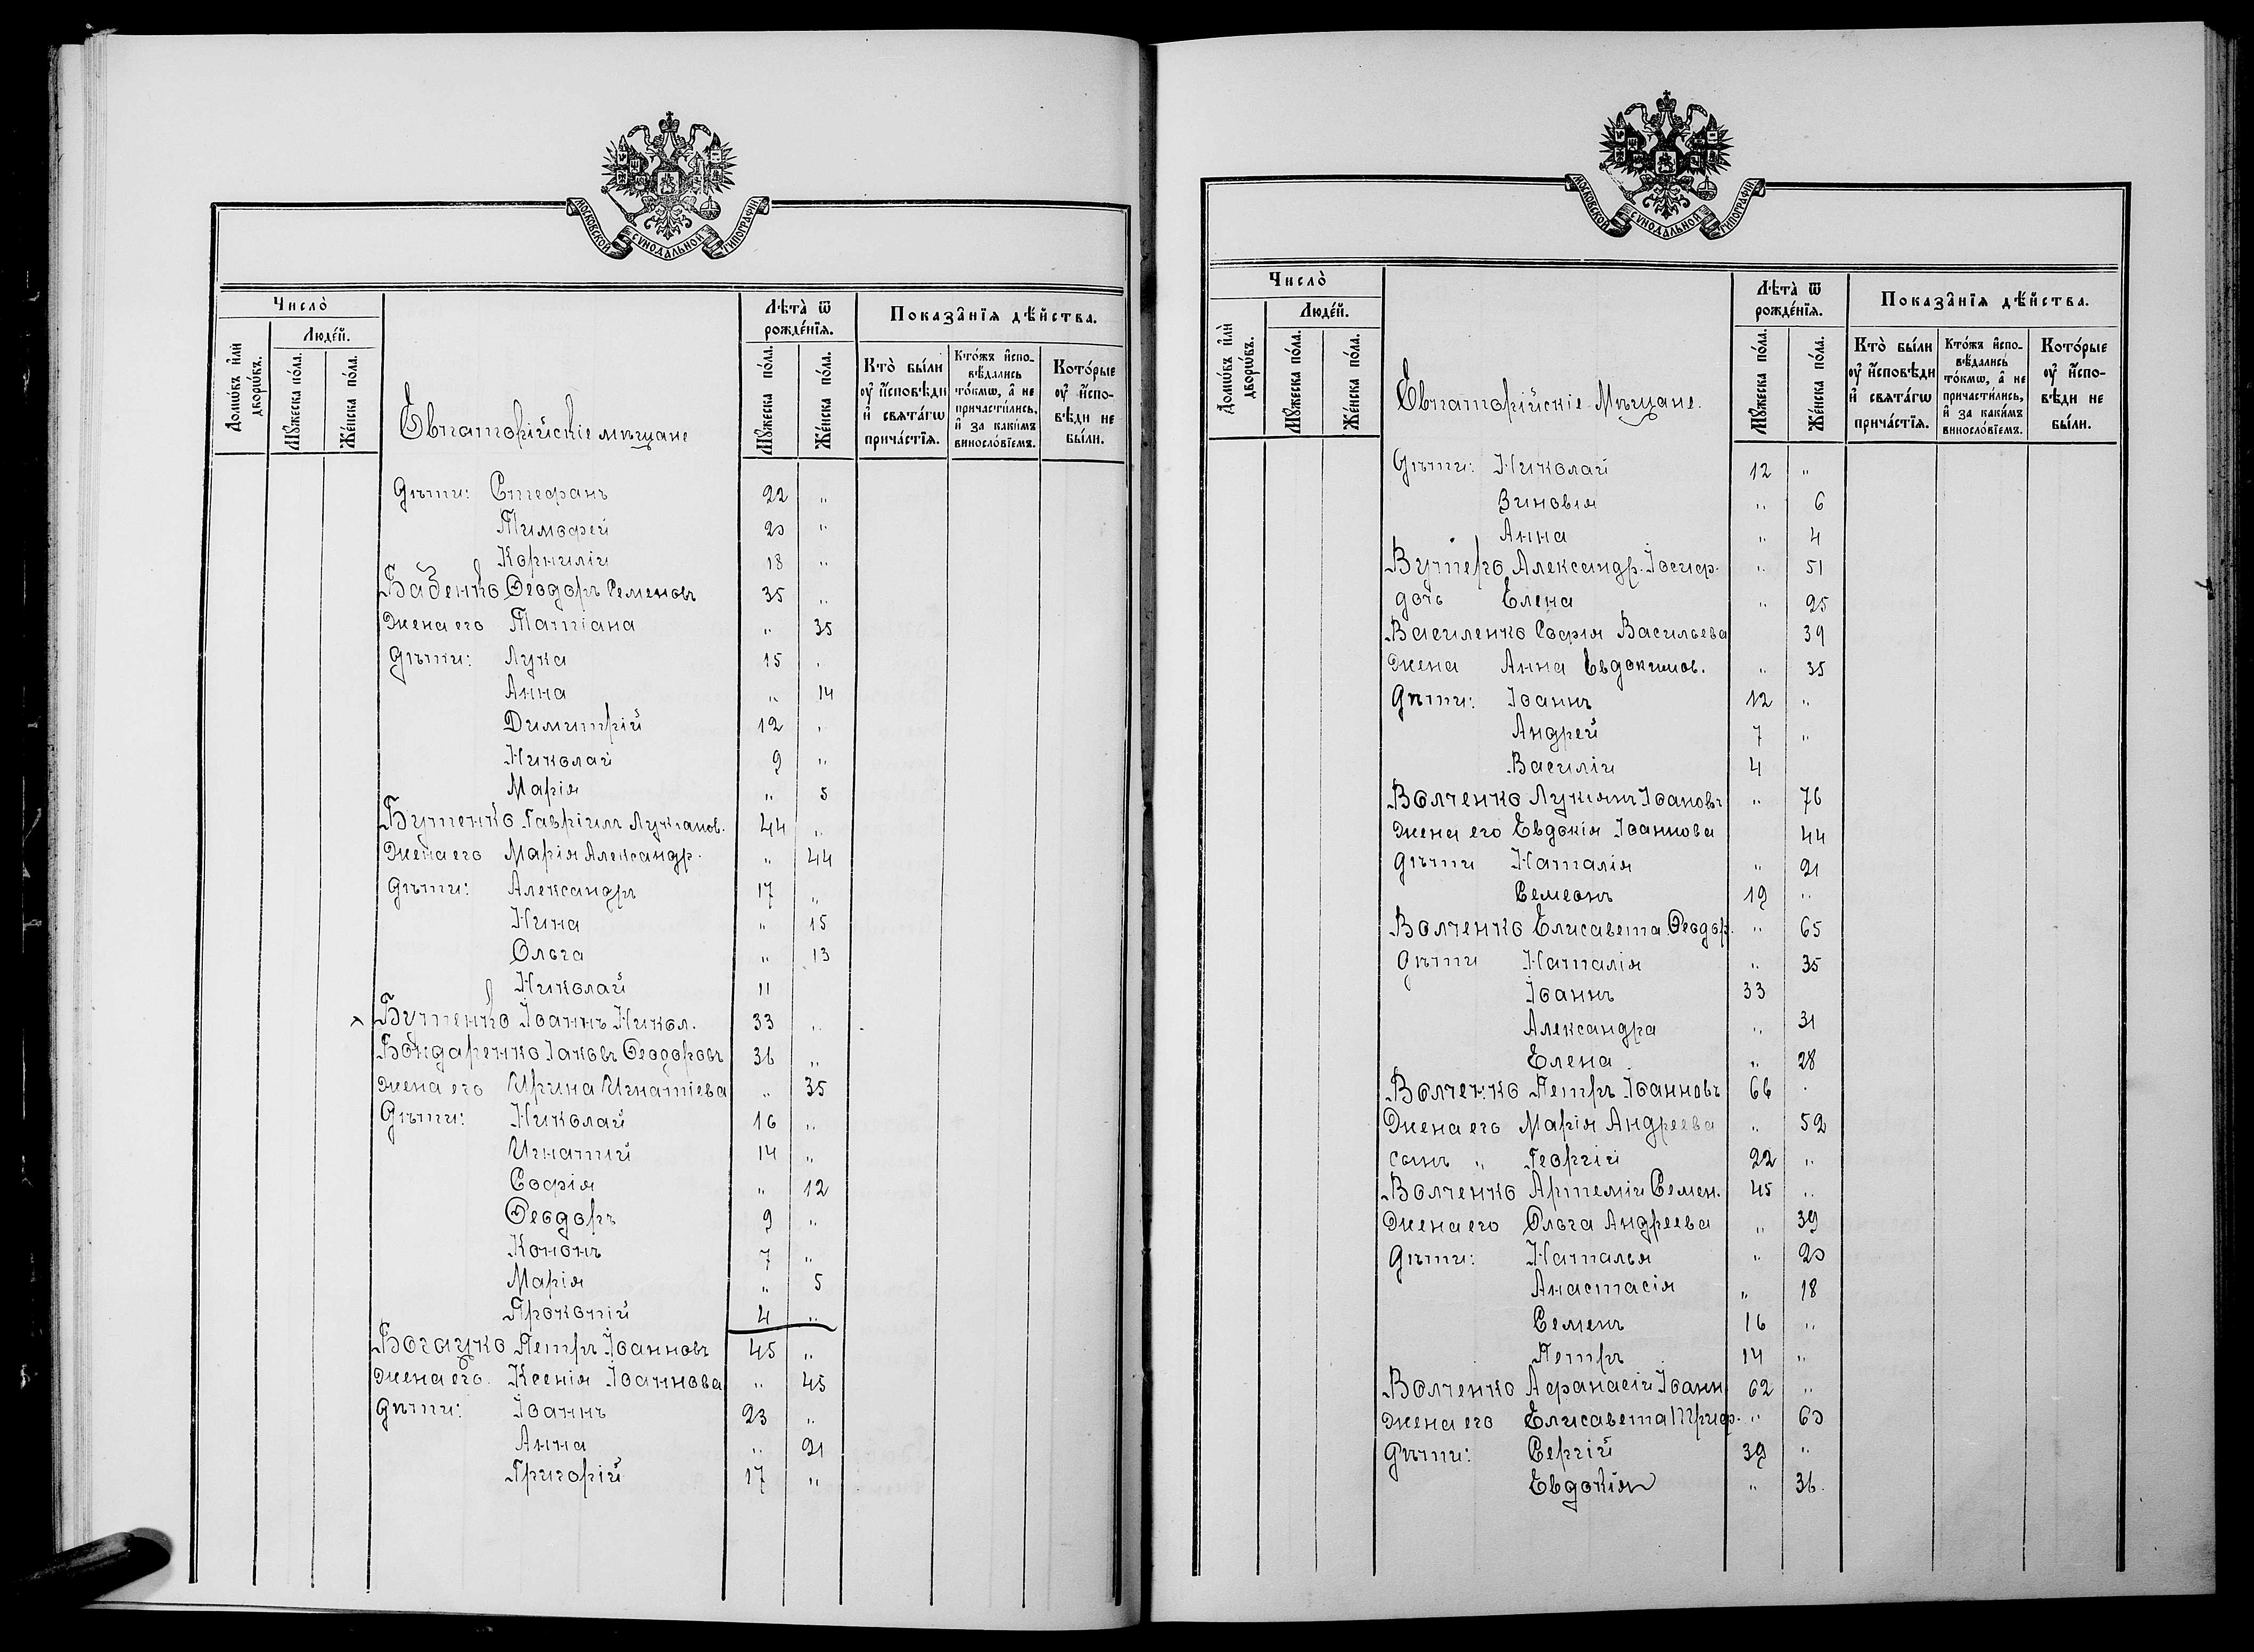 МОСКОВСКОЙ СѴНОДАЛЬНОЙ ТИПОГРАФІИ
Число̀
Люде́й.
Домѡ́въ и҆лѝ дворѡ́въ.
Мꙋ́жеска по́ла.
Же́нска по́ла.
Лѣ́та ѿ рожде́нїѧ.
Мꙋ́жеска по́ла.
Же́нска по́ла.
Показа̑нїѧ дѣ́йства.
Кто̀ бы́ли ᲂу҆ и҆́сповѣди и҆ свѧта́гѡ прича́стїѧ.
Кто́жъ и҆спо-вѣ́дались то́кмѡ, а҆ не причасти́лись, и҆ за каки́мъ винослѡ́вїемъ.
Кото́рые ᲂу҆ и҆́спо-вѣди не бы́ли.
Евпаторійскіе мѣщане
Дѣти: Стефанъ 22 „
Тимофей 20 „
Корнилій 18 „
Бабенко Ѳеодоръ Семеновъ 35 „
Жена его Татіана „ 35
Дѣти: Лука 15 „
Анна „ 14
Димитрій 12 „
Николай 9 „
Марія „ 5
Бутенко Гавріилъ Лукіанов. 44 „
Жена его Марія Александр. „ 44
Дѣти: Александръ 17 „
Нина „ 15
Ольга „ 13
Николай 11
Бутенко Іоаннъ Никол. 33 „
Бондаренко Іаковъ Ѳеодоровъ 36 „
Жена его Ирина Игнатіева „ 35
Дѣти: Николай 16 „
Игнатій 14 „
Софія „ 12
Ѳеодоръ 9 „
Кононъ 7 „
Марія „ 5
Прокопій 4 „
Богацко Петръ Іоанновъ 45 „
Жена его Ксенія Іоаннова „ 45
Дѣти: Іоаннъ 23 „
Анна „ 21
Григорій 17 „
МОСКОВСКОЙ СѴНОДАЛЬНОЙ ТИПОГРАФІИ
Число̀
Люде́й.
Домѡ́въ и҆лѝ дворѡ́въ.
Мꙋ́жеска по́ла.
Же́нска по́ла.
Лѣ́та ѿ рожде́нїѧ.
Мꙋ́жеска по́ла.
Же́нска по́ла.
Показа̑нїѧ дѣ́йства.
Кто̀ бы́ли ᲂу҆ и҆́сповѣди и҆ свѧта́гѡ прича́стїѧ.
Кто́жъ и҆спо-вѣ́дались то́кмѡ, а҆ не причасти́лись, и҆ за каки́мъ винослѡ́вїемъ.
Кото́рые ᲂу҆ и҆́спо-вѣди не бы́ли.
Евпаторійскіе Мѣщане.
Дѣти: Николай 12 „
Зиновія „ 6
Анна „ 4
Александр. Іосиф. „ 51
дочь Елена „ 25
Василенко Софія Васильева 39
Жена Анна Евдокимов. „ 35
Дѣти: Іоаннъ 12 „
Андрей 7 „
Василій 4
Волченко Лукіянъ Іоановъ „ 76
Жена его Евдокія Іоаннова 44
Дѣти Наталія „ 21
Семеонъ 19 „
Волченко Елисавета Ѳеодор. „ 65
Дѣти Наталія „ 35
Іоаннъ 33
Александра „ 31
Елена „ 28
Волченко Петръ Іоанновъ 66 „
Жена его Марія Андреева „ 52
сынъ „ Георгій 22 „
Волченко Артемій Семен. 45 „
Жена его Ольга Андреева „ 39
Дѣти: Наталья „ 20
Анастасія „ 18
Семенъ 16 „
Петръ 14 „
Волченко Афанасій Іоанн 62 „
Жена его Елисавета Триф. „ 60
Дѣти: Сергій 39 „
Евдокія „ 36.